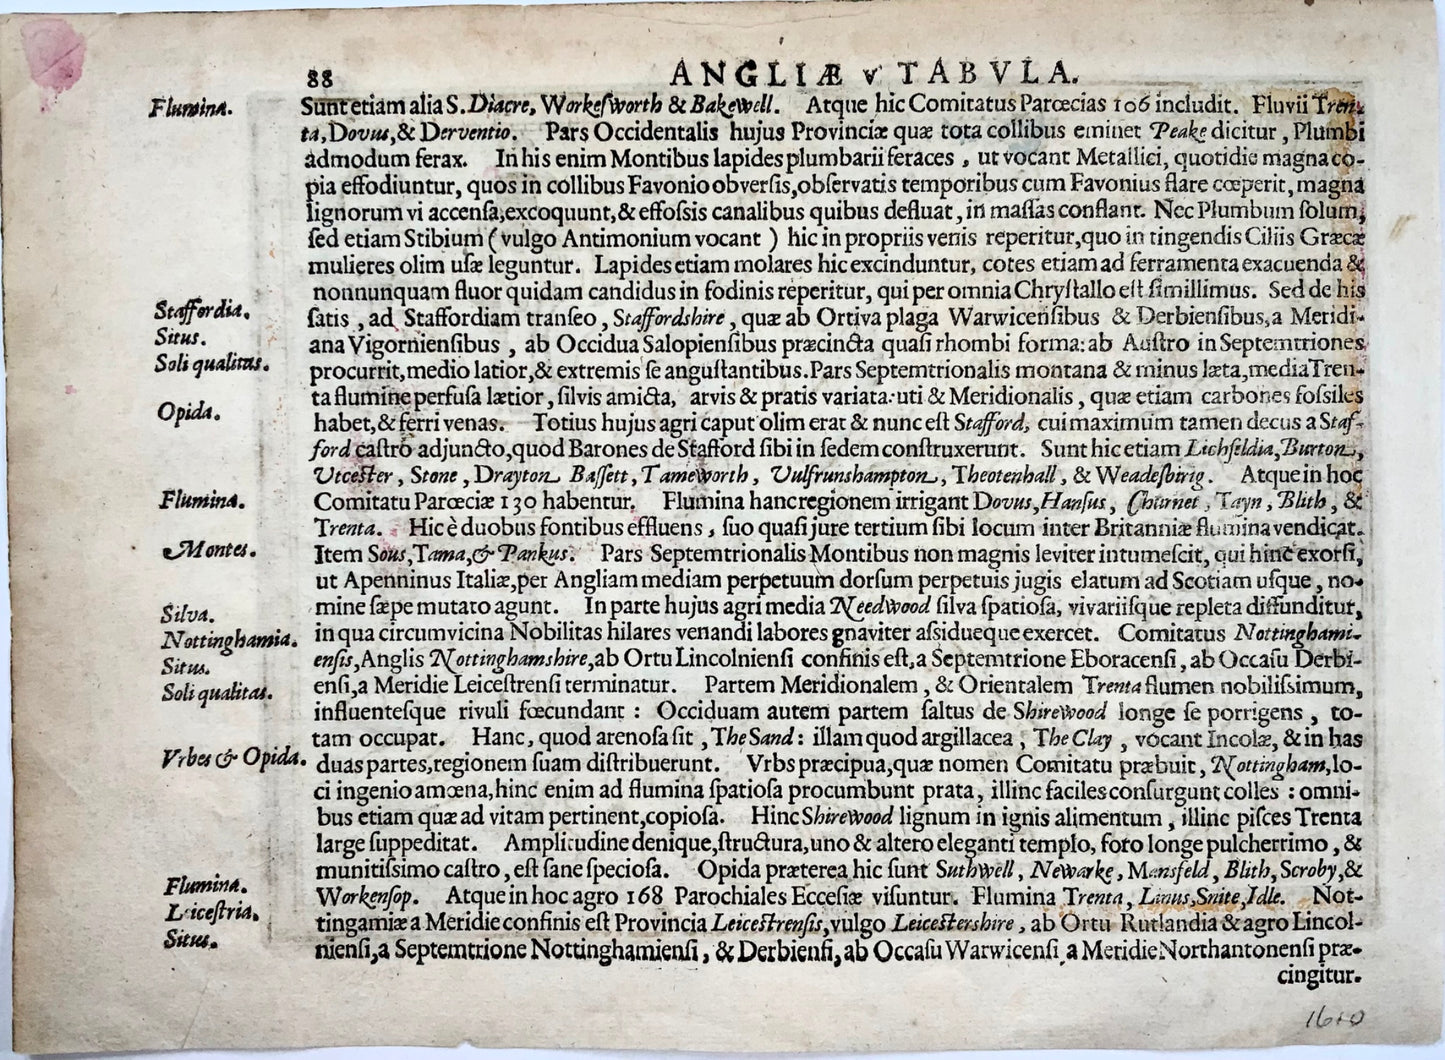 88 ANGLIÆ v TABVLA.
Flumina. Sunt etiam alia S. Diacre, Workeſworth & Bakewell. Atque hic Comitatus Parœcias 106 includit. Fluvii Tren-
ta, Dovus, & Derventio. Pars Occidentalis hujus Provinciæ quæ tota collibus eminet Peake dicitur, Plumbi
admodum ferax. In his enim Montibus lapides plumbarii feraces, ut vocant Metallici, quotidie magna co-
pia effodiuntur, quos in collibus Favonio obverſis, obſervatis temporibus cum Favonius flare cœperit, magna
lignorum vi accenſa, excoquunt, & effoſsis canalibus quibus defluat, in maſſas conflant. Nec Plumbum ſolum,
ſed etiam Stibium (vulgo Antimonium vocant) hic in propriis venis reperitur, quo in tingendis Ciliis Græcæ
mulieres olim uſæ leguntur. Lapides etiam molares hic excinduntur, cotes etiam ad ferramenta exacuenda &
nonnunquam fluor quidam candidus in fodinis reperitur, qui per omnia Chryſtallo eſt ſimillimus. Sed de his
Staffordia. ſatis, ad Staffordiam tranſeo, Staffordshire, quæ ab Ortiva plaga Warwicenſibus & Derbienſibus, a Meridi-
Situs. ana Vigornienſibus, ab Occidua Salopienſibus præcincta quaſi rhombi forma: ab Auſtro in Septemtriones
Soli qualitas. procurrit, medio latior, & extremis ſe anguſtantibus. Pars Septemtrionalis montana & minus læta, media Tren-
ta flumine perfuſa lætior, ſilvis amicta, arvis & pratis variata: uti & Meridionalis, quæ etiam carbones foſsiles
Opida. habet, & ferri venas. Totius hujus agri caput olim erat & nunc eſt Stafford, cui maximum tamen decus a Staf-
ford caſtro adjuncto, quod Barones de Stafford ſibi in ſedem conſtruxerunt. Sunt hic etiam Lichfeldia, Burton,
Utceſter, Stone, Drayton, Baſſett, Tameworth, Vulfrunshampton, Theotenhall, & Weadesbirig. Atque in hoc
Flumina. Comitatu Parœciæ 130 habentur. Flumina hanc regionem irrigant Dovus, Hanſus, Churnet, Tayn, Blith, &
Trenta. Hic è duobus fontibus effluens, ſuo quaſi jure tertium ſibi locum inter Britanniæ flumina vendicat.
Montes. Item Sous, Tama, & Pankus. Pars Septemtrionalis Montibus non magnis leviter intumeſcit, qui hinc exorſi,
ut Apenninus Italiæ, per Angliam mediam perpetuum dorſum perpetuis jugis elatum ad Scotiam uſque, no-
Silva. mine ſæpe mutato agunt. In parte hujus agri media Needwood ſilva ſpatioſa, vivariiſque repleta diffunditur,
Nottinghamia. in qua circumvicina Nobilitas hilares venandi labores gnaviter aſsidueque exercet. Comitatus Nottinghami-
Situs. enſis, Anglis Nottinghamshire, ab Ortu Lincolnienſi confinis eſt, a Septemtrione Eboracenſi, ab Occaſu Derbi-
Soli qualitas. enſi, a Meridie Leiceſtrenſi terminatur. Partem Meridionalem, & Orientalem Trenta flumen nobiliſsimum,
influenteſque rivuli fœcundant: Occiduam autem partem ſaltus de Shirewood longe ſe porrigens, to-
tam occupat. Hanc, quod arenoſa ſit, The Sand: illam quod argillacea, The Clay, vocant Incolæ, & in has
Vrbes & Opida. duas partes, regionem ſuam diſtribuerunt. Vrbs præcipua, quæ nomen Comitatu præbuit, Nottingham, lo-
ci ingenio amœna, hinc enim ad flumina ſpatioſa procumbunt prata, illinc faciles conſurgunt colles: omni-
bus etiam quæ ad vitam pertinent, copioſa. Hinc Shirewood lignum in ignis alimentum, illinc piſces Trenta
large ſuppeditat. Amplitudine denique, ſtructura, uno & altero eleganti templo, foro longe pulcherrimo, &
munitiſsimo caſtro, eſt ſane ſpecioſa. Opida præterea hic ſunt Suthwell, Newarke, Mansfeld, Blith, Scroby, &
Flumina. Workenſop. Atque in hoc agro 168 Parochiales Ecceſiæ viſuntur. Flumina Trenta, Linus, Snite, Idle. Not-
Leiceſtria. tingamiæ a Meridie confinis eſt Provincia Leiceſtrenſis, vulgo Leiceſtershire, ab Ortu Rutlandia & agro Lincol-
Situs. nienſi, a Septemtrione Nottinghamienſi, & Derbienſi, ab Occaſu Warwicenſi, a Meridie Northantonenſi præ-
cingitur.